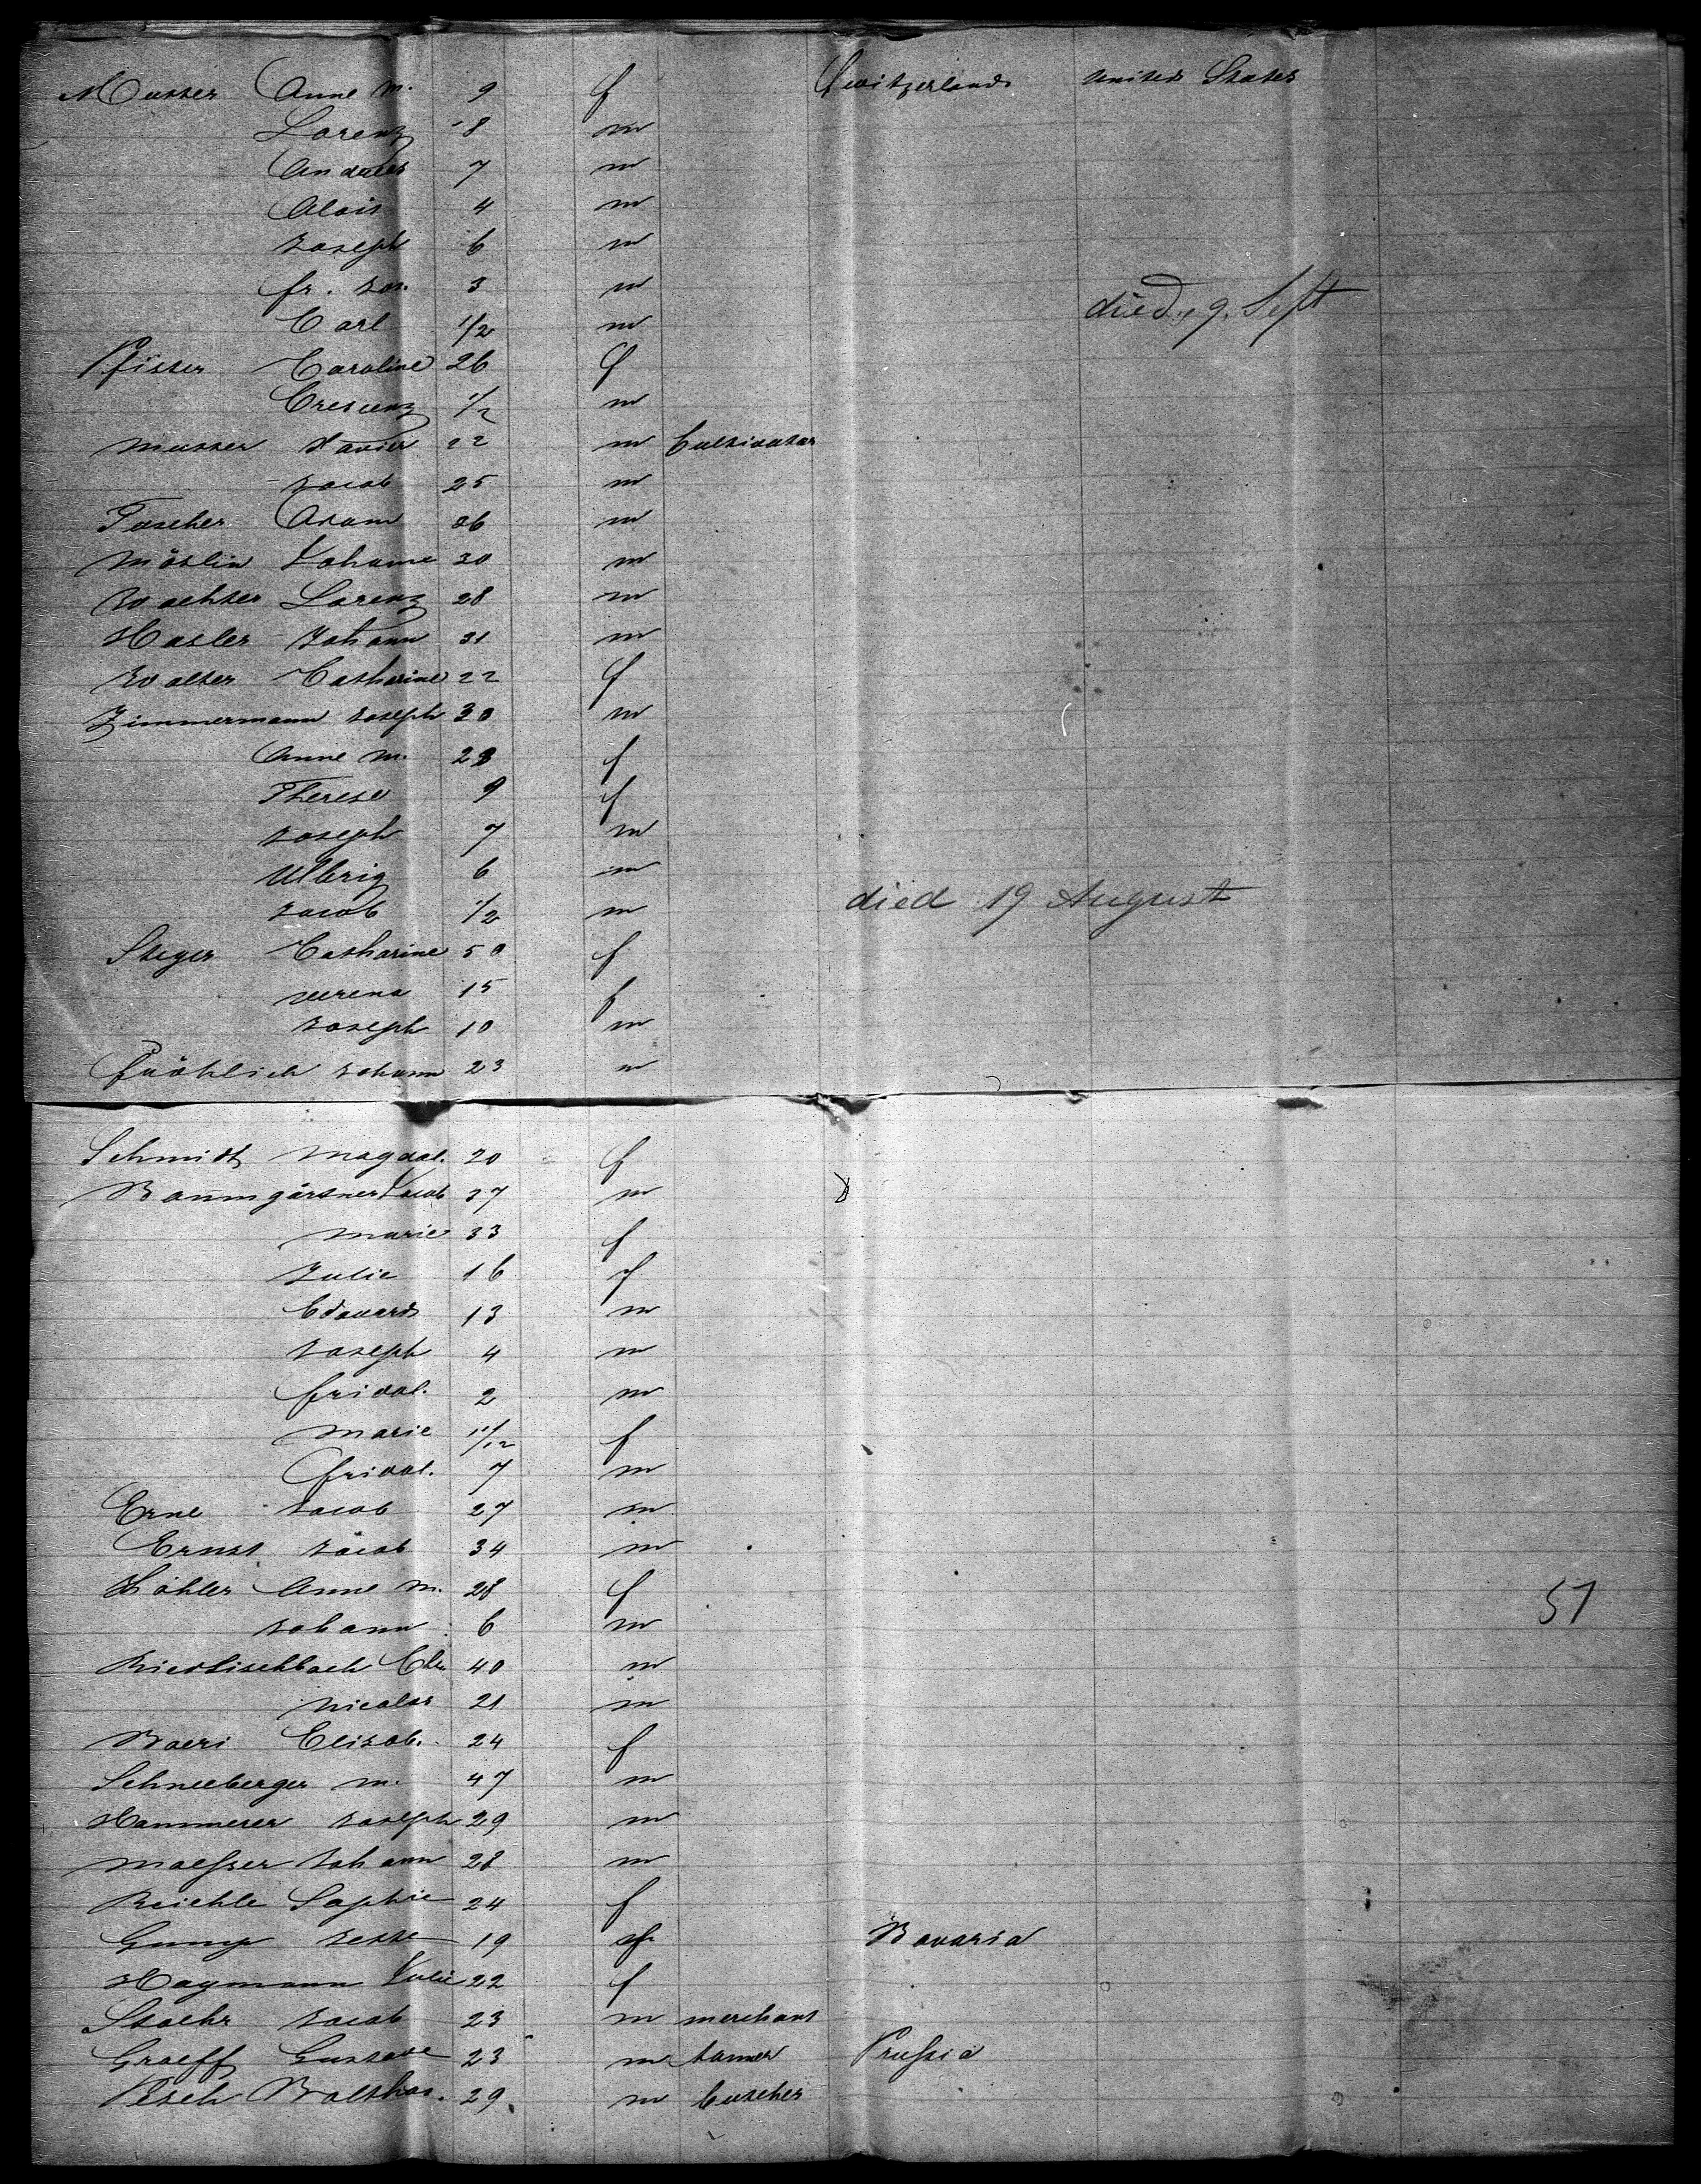 Musser Anne M. 9 f Switzerland United States
Lorenz 8 m
Andreas 7 m
Alois 4 m
Joseph 6 m
fr. Jos. 3 m died, 9. Sept
Carl 1/2 m
Pfister Caroline 26 f
Crescenz 1/2 m
Musser Xavier 22 m Cultivator
Jacob 25 m
Tascher Adam 26 m
Möslin Johann 30 m
Wachter Lorenz 28 m
Hasler Johann 31 m
Walter Catharine 22 f
Zimmermann Joseph 30 m
Anne M. 28 f
Therese 9 f
Joseph 7 m
Ulbrig 6 m
Jacob 1/2 m died 19 August
Steger Catharine 50 f
Verena 15 f
Joseph 10 m
Fröhlich Johann 23 m
Schmidt Magdal. 20 f
Baumgärtner Jacob 37 m
Marie 33 f
Julie 16 f
Edouard 13 m
Joseph 4 m
fridol. 2 m
Marie 11/12 f
fridol. 7 m
Erne Jacob 27 m
Ernst Jacob 34 m
Köhler Anne M. 28 f
Johann 6 m
40 m
Nicolas 21 m
Baeri Elisab. 24 f
Schneeberger M. 47 m
Hammerer Joseph 29 m
Maesser Johann 28 m
Reichle Sophie 24 f
Gump 19 Bavaria
Haymann Julie 22 f
Staehr Jacob 23 m merchant
Graeff Gustave 23 m tanner Prussia
Pesch Balthas. 29 m butcher
51